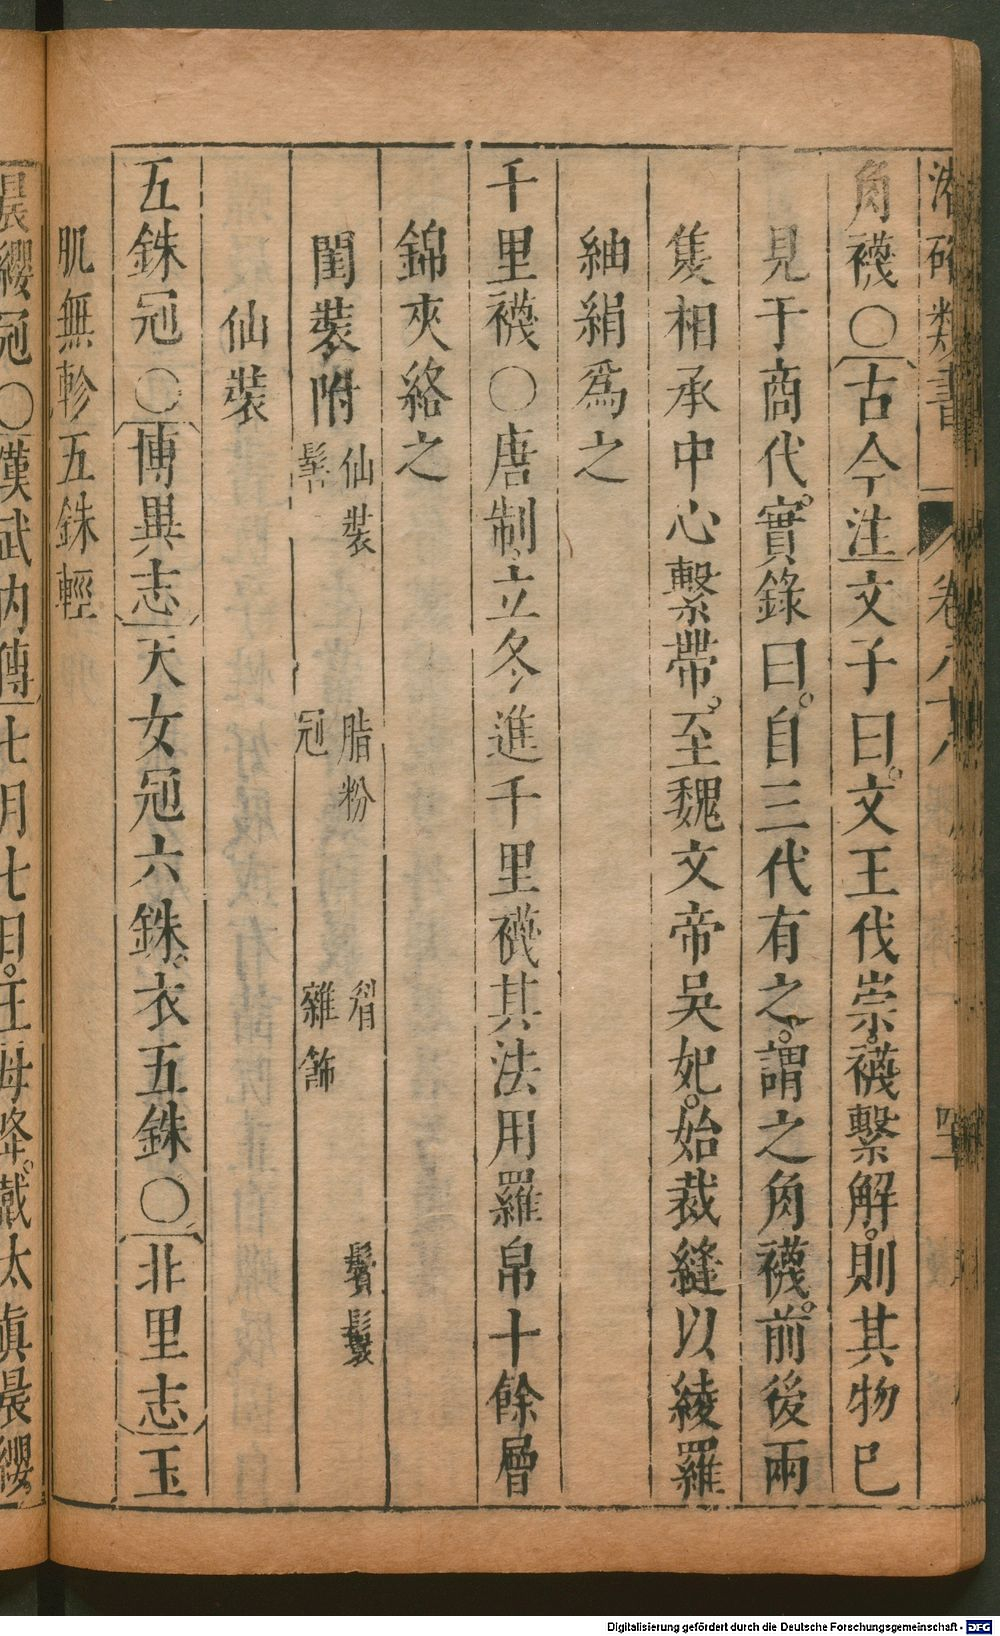 潛確類書 卷八十八
角襪〇古今注文子曰文王伐崇襪繫解則其物已
見于商代實錄曰自三代有之謂之角襪前後兩
隻相承中心繫帶至魏文帝吳妃始裁縫以綾羅
紬絹爲之
千里襪〇唐制立冬進千里襪其法用羅帛十餘層
錦夾絡之
閨裝附 仙裝 脂粉 眉 鬢鬟
髻 冠 雜飾
仙裝
五銖冠〇博異志天女冠六銖衣五銖〇北里志玉
肌無軫五銖輕
晨纓冠〇漢武內傳七月七日王母降戴太眞晨纓
Digitalisierung gefördert durch die Deutsche Forschungsgemeinschaft - DFG